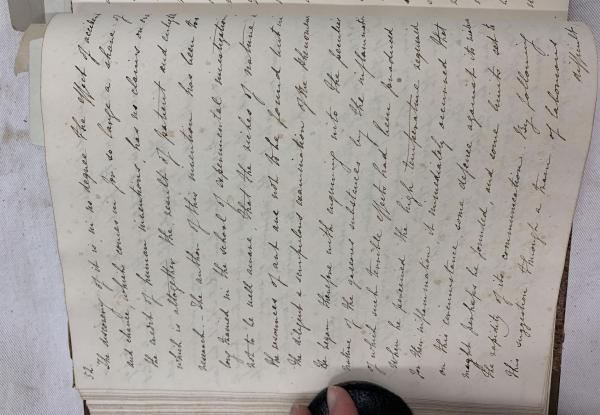 52
The discovery of it is in no degree the effect of accident
and chance, which comes in for so large a share of
the credit of human inventions, has no claims over
which is altogether the result of patient and enlight
research. The author of this invention has been too
long trained in the school of experimental investigation
not to be well aware, that the riches of nature &
the resources of art are not to be found but in
the diligent & scrupulous examination of the phenomena
He began therefore with enquiring into the peculiar
nature of the gaseous substances by the inflammation
of which such terrible effects had been produced
When he perceived the high temperature required
for their inflammation it immediately occurred that
on this circumstance some defence against its action
might perhaps be founded, and some limits set to
the rapidity of its communication. By following
this suggestion through a train of laborious
difficult